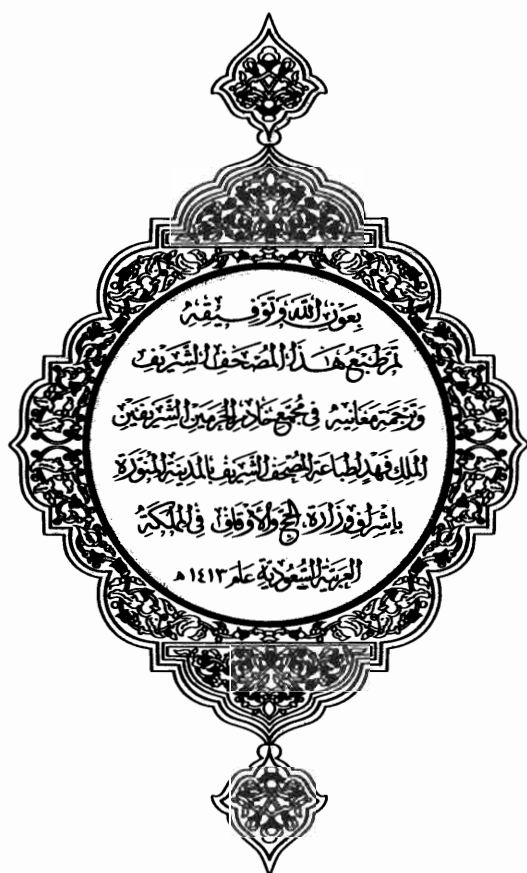 بعون الله وتوفيقه
تم طبع هذا المصحف الشريف
وترجمة معانيه في مجمع خادم الحرمين الشريفين
الملك فهد لطباعة المصحف الشريف بالمدينة المنورة
بإشراف وزارة الحج والأوقاف في المملكة
العربية السعودية عام ١٤١٣ هـ